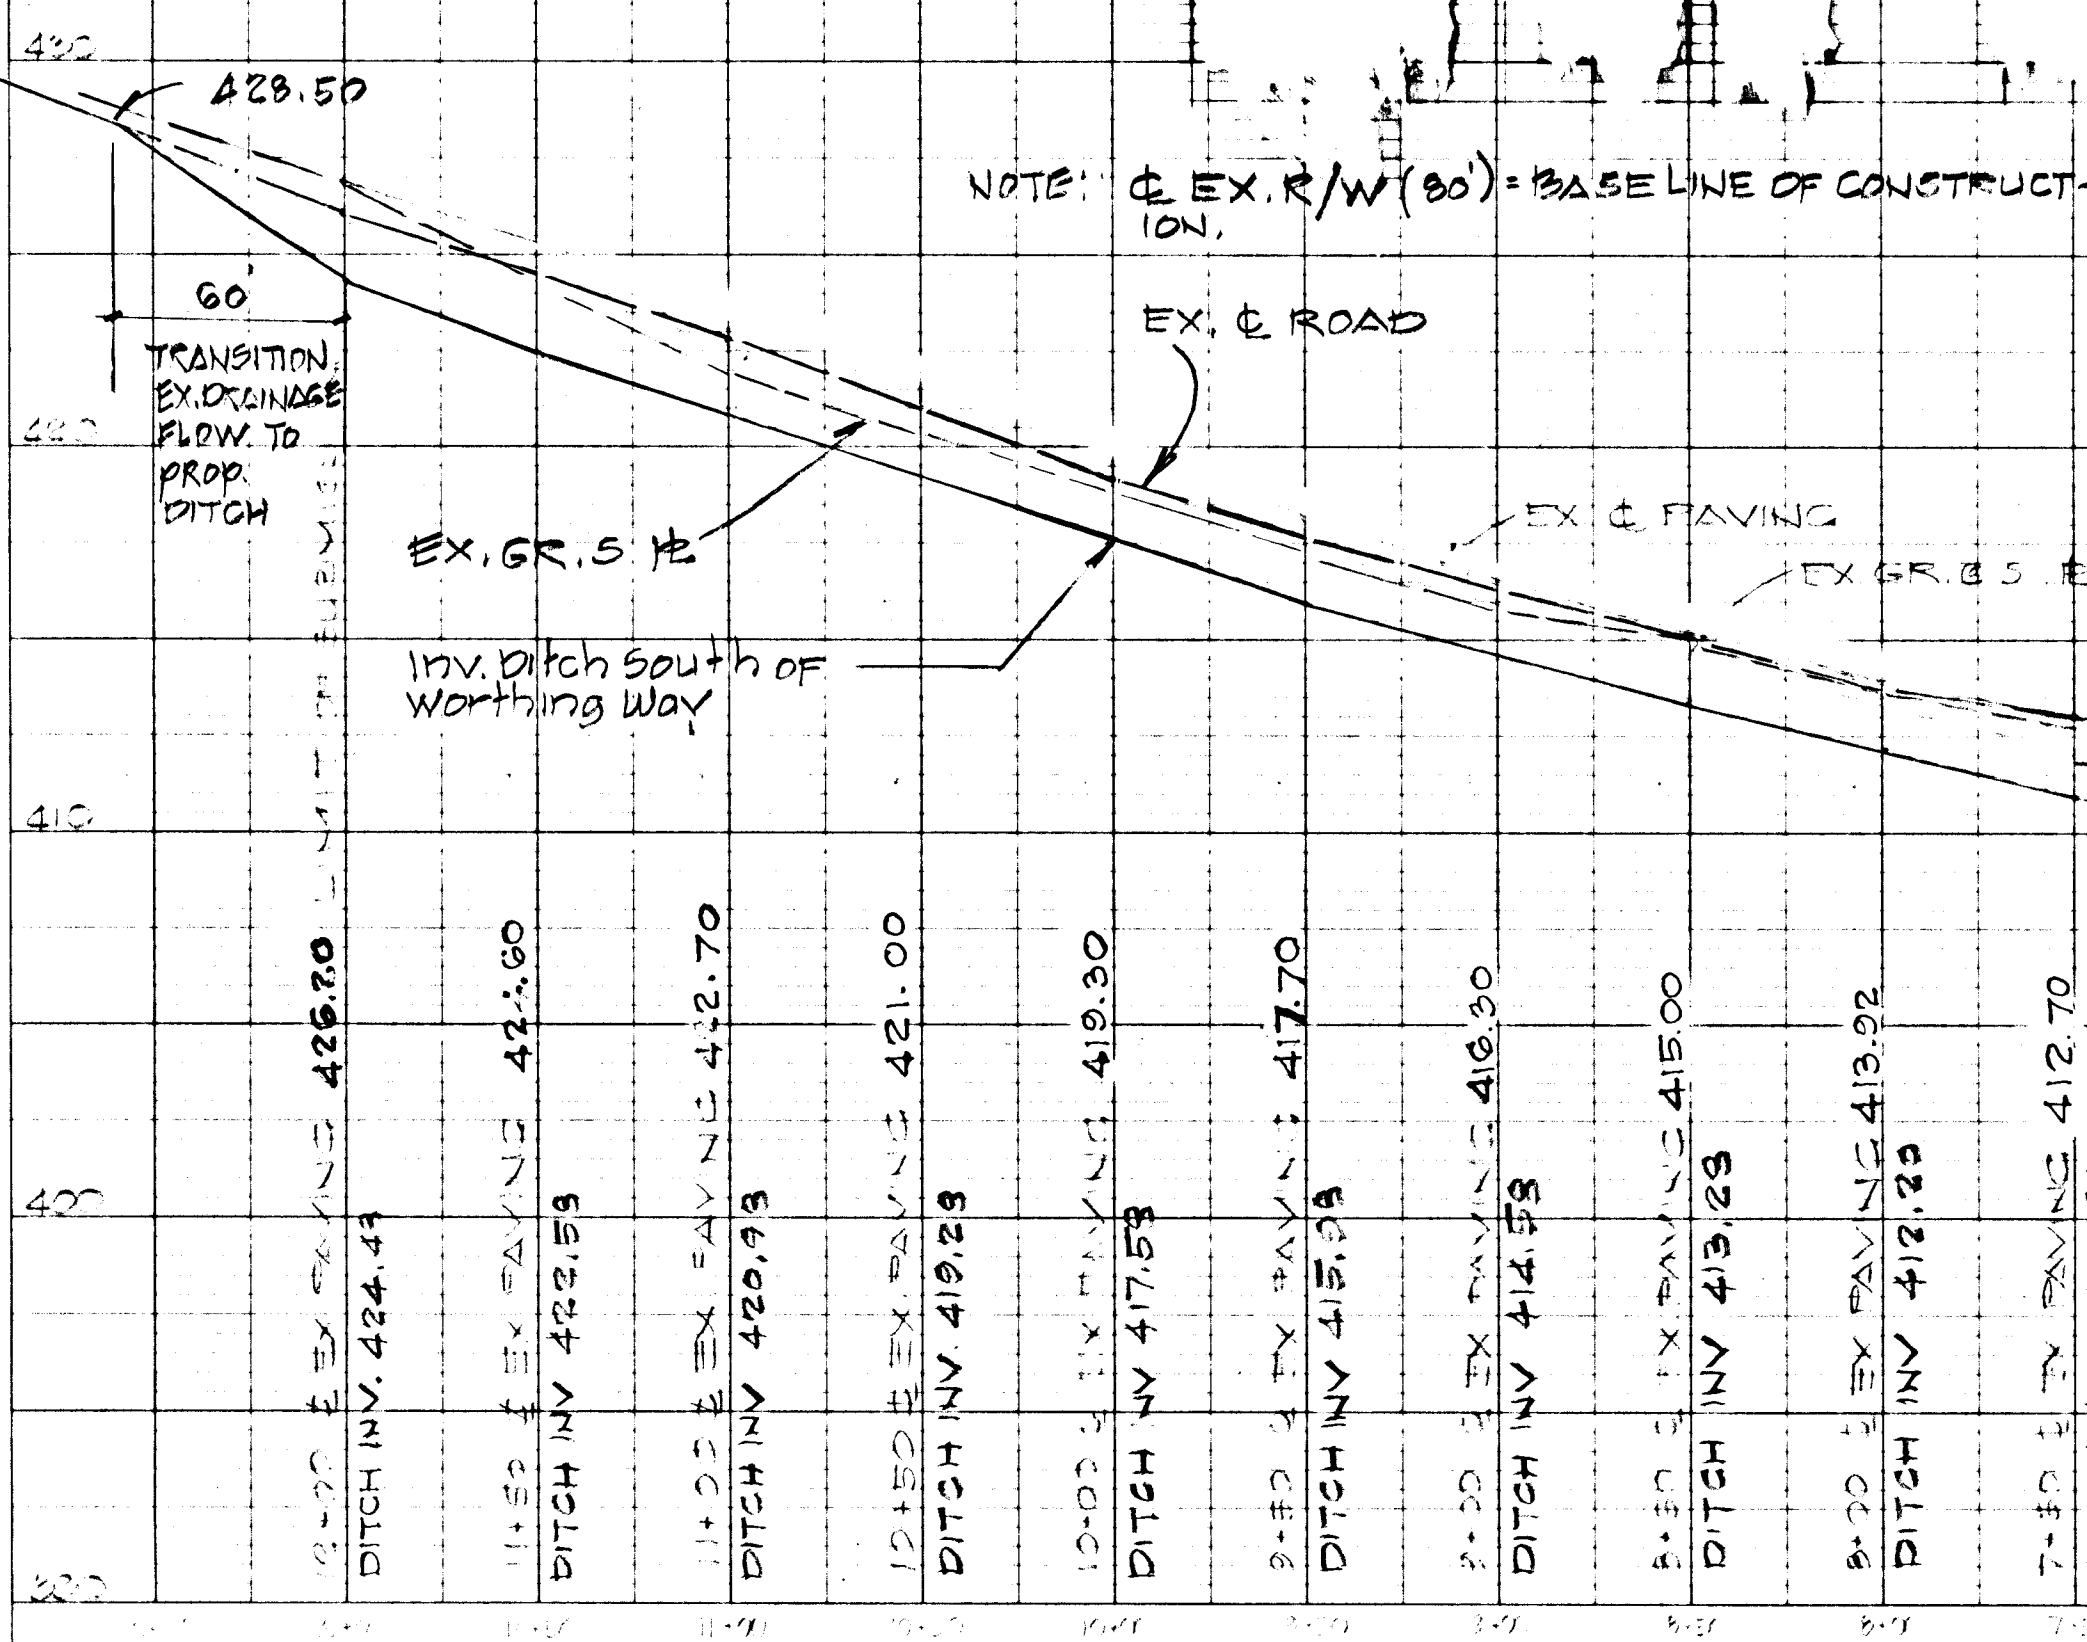 430
428.50
NOTE: ℄ EX. R/W (80') = BASE LINE OF CONSTRUCT-
ION.
60'
TRANSITION
EX. DRAINAGE
FLOW TO
PROP.
DITCH
EX. ℄ ROAD
420
EX. GR. S ⅊
EX ℄ PAVING
EX GR. @ S.
Inv. Ditch South OF
Worthing Way
410
400
LIMIT OF
12+00 ℄ EX PAVING 426.20
DITCH INV. 424.43
11+50 ℄ EX PAVING
DITCH INV 422.53
11+00 ℄ EX PAVING 422.70
DITCH INV 420.93
10+50 ℄ EX. PAVING 421.00
DITCH INV. 419.28
10+00 ℄ EX PAVING 419.30
DITCH INV 417.58
9+50 ℄ EX PAVING 417.70
DITCH INV
9+00 ℄ EX PAVING 416.30
DITCH INV 414.58
8+50 ℄ EX PAVING 415.00
DITCH INV 413.28
8+00 ℄ EX PAVING 413.92
DITCH INV 412.20
7+50 ℄ EX PAVING 412.70
11+00
10+00
8+00